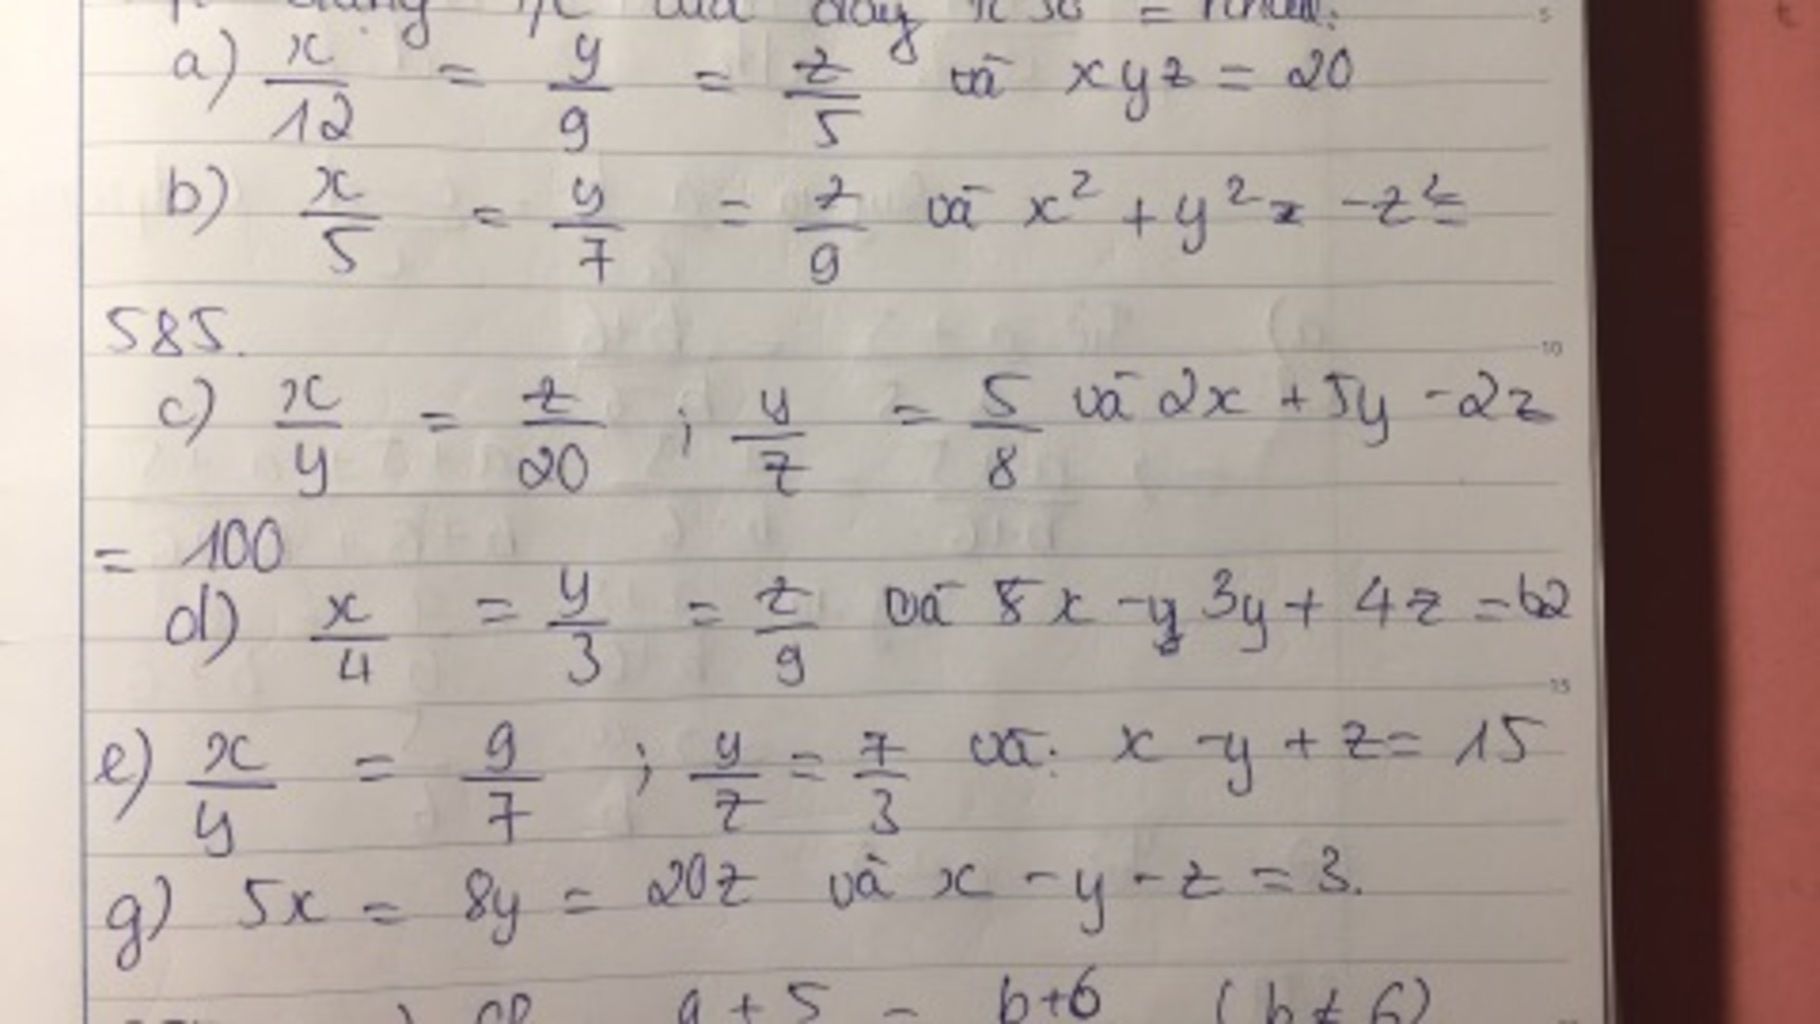 dụng t/c của dãy tỉ số = nhau:
a) x/12 = y/9 = z/5 và xyz = 20
b) x/5 = y/7 = z/9 và x² + y² - z² =
585.
c) x/y = z/20 ; y/z = 5/8 và 2x + 5y - 2z
= 100
d) x/4 = y/3 = z/9 và x - 3y + 4z = 62
e) x/y = 9/7 ; y/z = 7/3 và: x - y + z = 15
g) 5x = 8y = 20z và x - y - z = 3.
a + 5 = b + 6 (b ≠ 6)